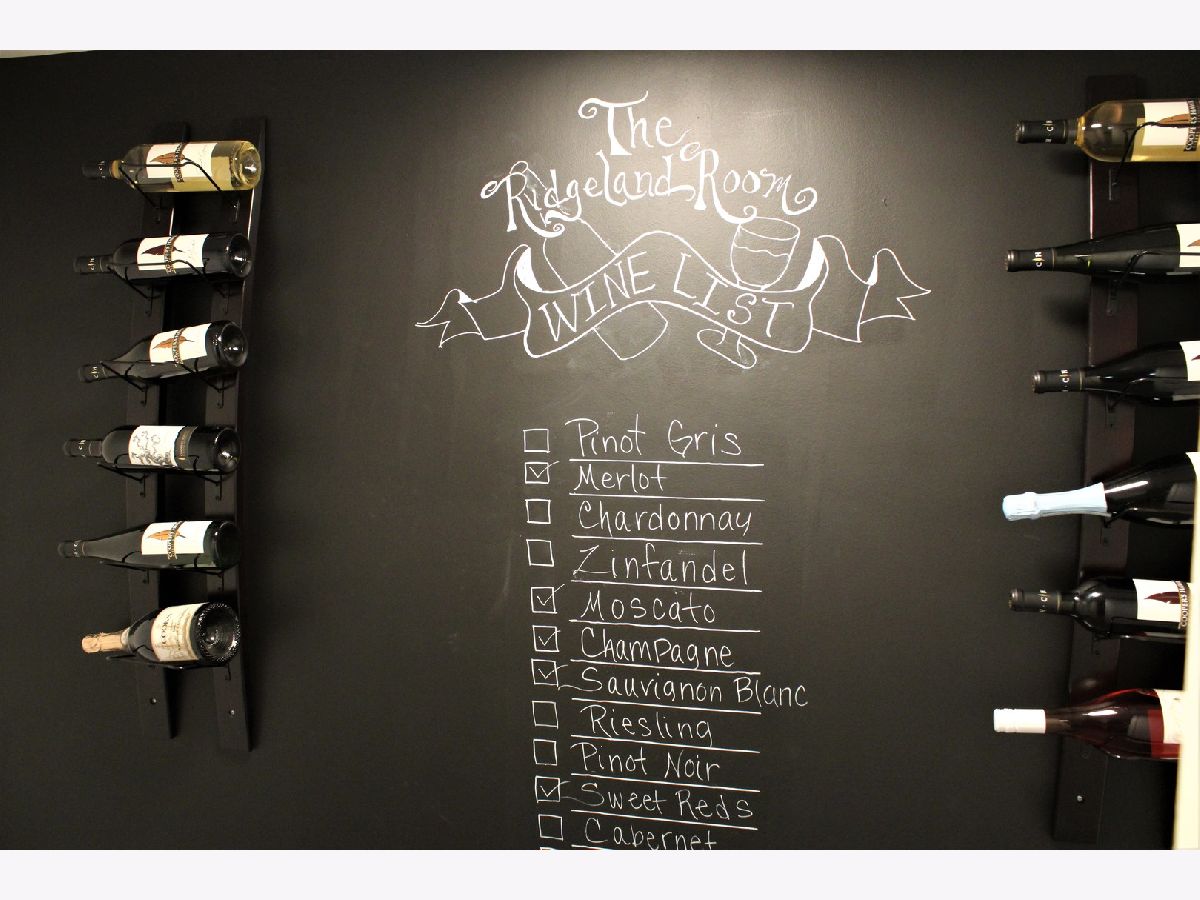 The
Ridgeland Room
WINE LIST
Pinot Gris
Merlot
Chardonnay
Zinfandel
Moscato
Champagne
Sauvignon Blanc
Riesling
Pinot Noir
Sweet Reds
Cabernet